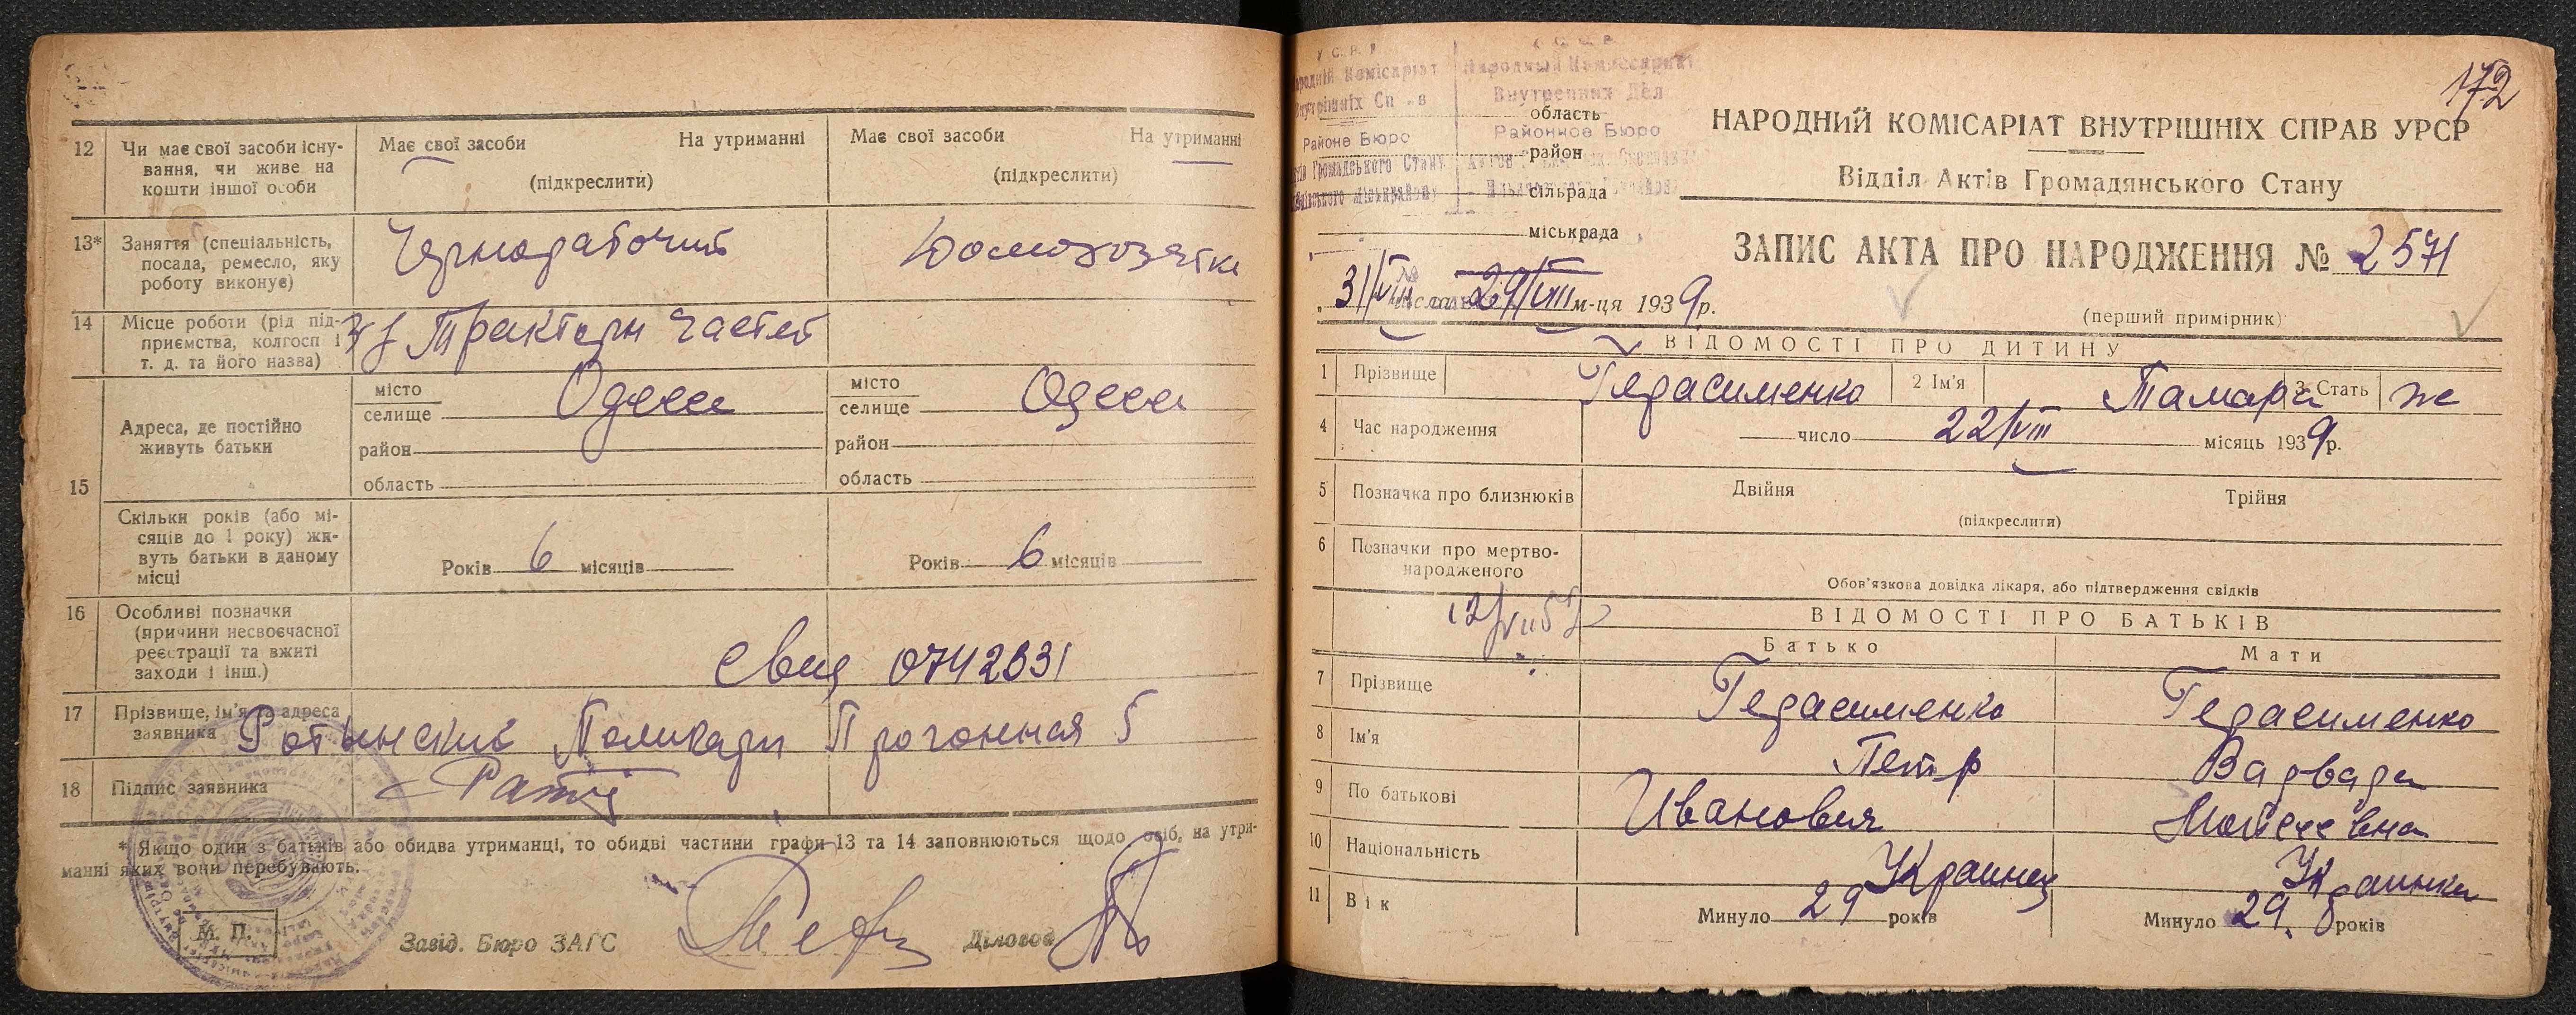 12 Чи має свої засоби існу-
вання, чи живе на
кошти іншої особи
Має свої засоби На утриманні
(підкреслити)
Має свої засоби На утриманні
(підкреслити)
13* Заняття (спеціальність,
посада, ремесло, яку
роботу виконує)
Чернорабочий
Домохозяйка
14 Місце роботи (рід під-
приємства, колгосп і
т. д. та його назва)
Трактерн частей
15 Адреса, де постійно
живуть батьки
місто
селище Одесса
район
область
місто
селище Одесса
район
область
Скільки років (або мі-
сяців до 1 року) жи-
вуть батьки в даному
місці
Років 6 місяців
Років 6 місяців
16 Особливі позначки
(причини несвоєчасної
реєстрації та вжиті
заходи і інш.)
Свид 0742331
17 Прізвище, ім'я та адреса
заявника
Поликарп Прогонная 5
18 Підпис заявника
* Якщо один з батьків або обидва утриманці, то обидві частини графи 13 та 14 заповнюються щодо осіб, на утри-
манні яких вони перебувають.
М. П.
Завід. Бюро ЗАГС
Діловод
172
Народній Комісаріат
Внутрішніх Справ
Районе Бюро
Народный Комиссариат
Внутренних Дел
Районное Бюро
область
район
сільрада
міськрада
31/VIII 29/VIII м-ця 1939р.
НАРОДНИЙ КОМІСАРІАТ ВНУТРІШНІХ СПРАВ УРСР
Відділ Актів Громадянського Стану
ЗАПИС АКТА ПРО НАРОДЖЕННЯ № 2571
(перший примірник)
ВІДОМОСТІ ПРО ДИТИНУ
1 Прізвище Герасименко 2 Ім'я Тамара 3 Стать ж
4 Час народження число 22/VIII місяць 1939р.
5 Позначка про близнюків Двійня Трійня
(підкреслити)
6 Позначки про мертво-
народженого
Обов'язкова довідка лікаря, або підтвердження свідків
ВІДОМОСТІ ПРО БАТЬКІВ
Батько Мати
7 Прізвище Герасименко Герасименко
8 Ім'я Петр Варвара
9 По батькові Иванович Моисеевна
10 Національність Украинец Украинка
11 Вік Минуло 29 років Минуло 29 років